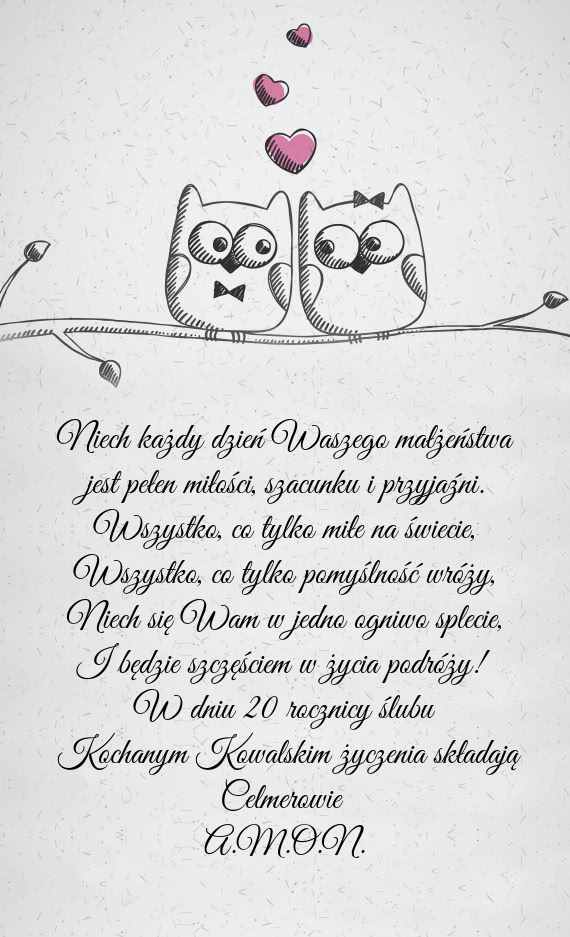 Niech każdy dzień Waszego małżeństwa
jest pełen miłości, szacunku i przyjaźni.
Wszystko, co tylko miłe na świecie,
Wszystko, co tylko pomyślność wróży,
Niech się Wam w jedno ogniwo splecie,
I będzie szczęściem w życia podróży!
W dniu 20 rocznicy ślubu
Kochanym Kowalskim życzenia składają
Celmerowie
A.M.O.N.